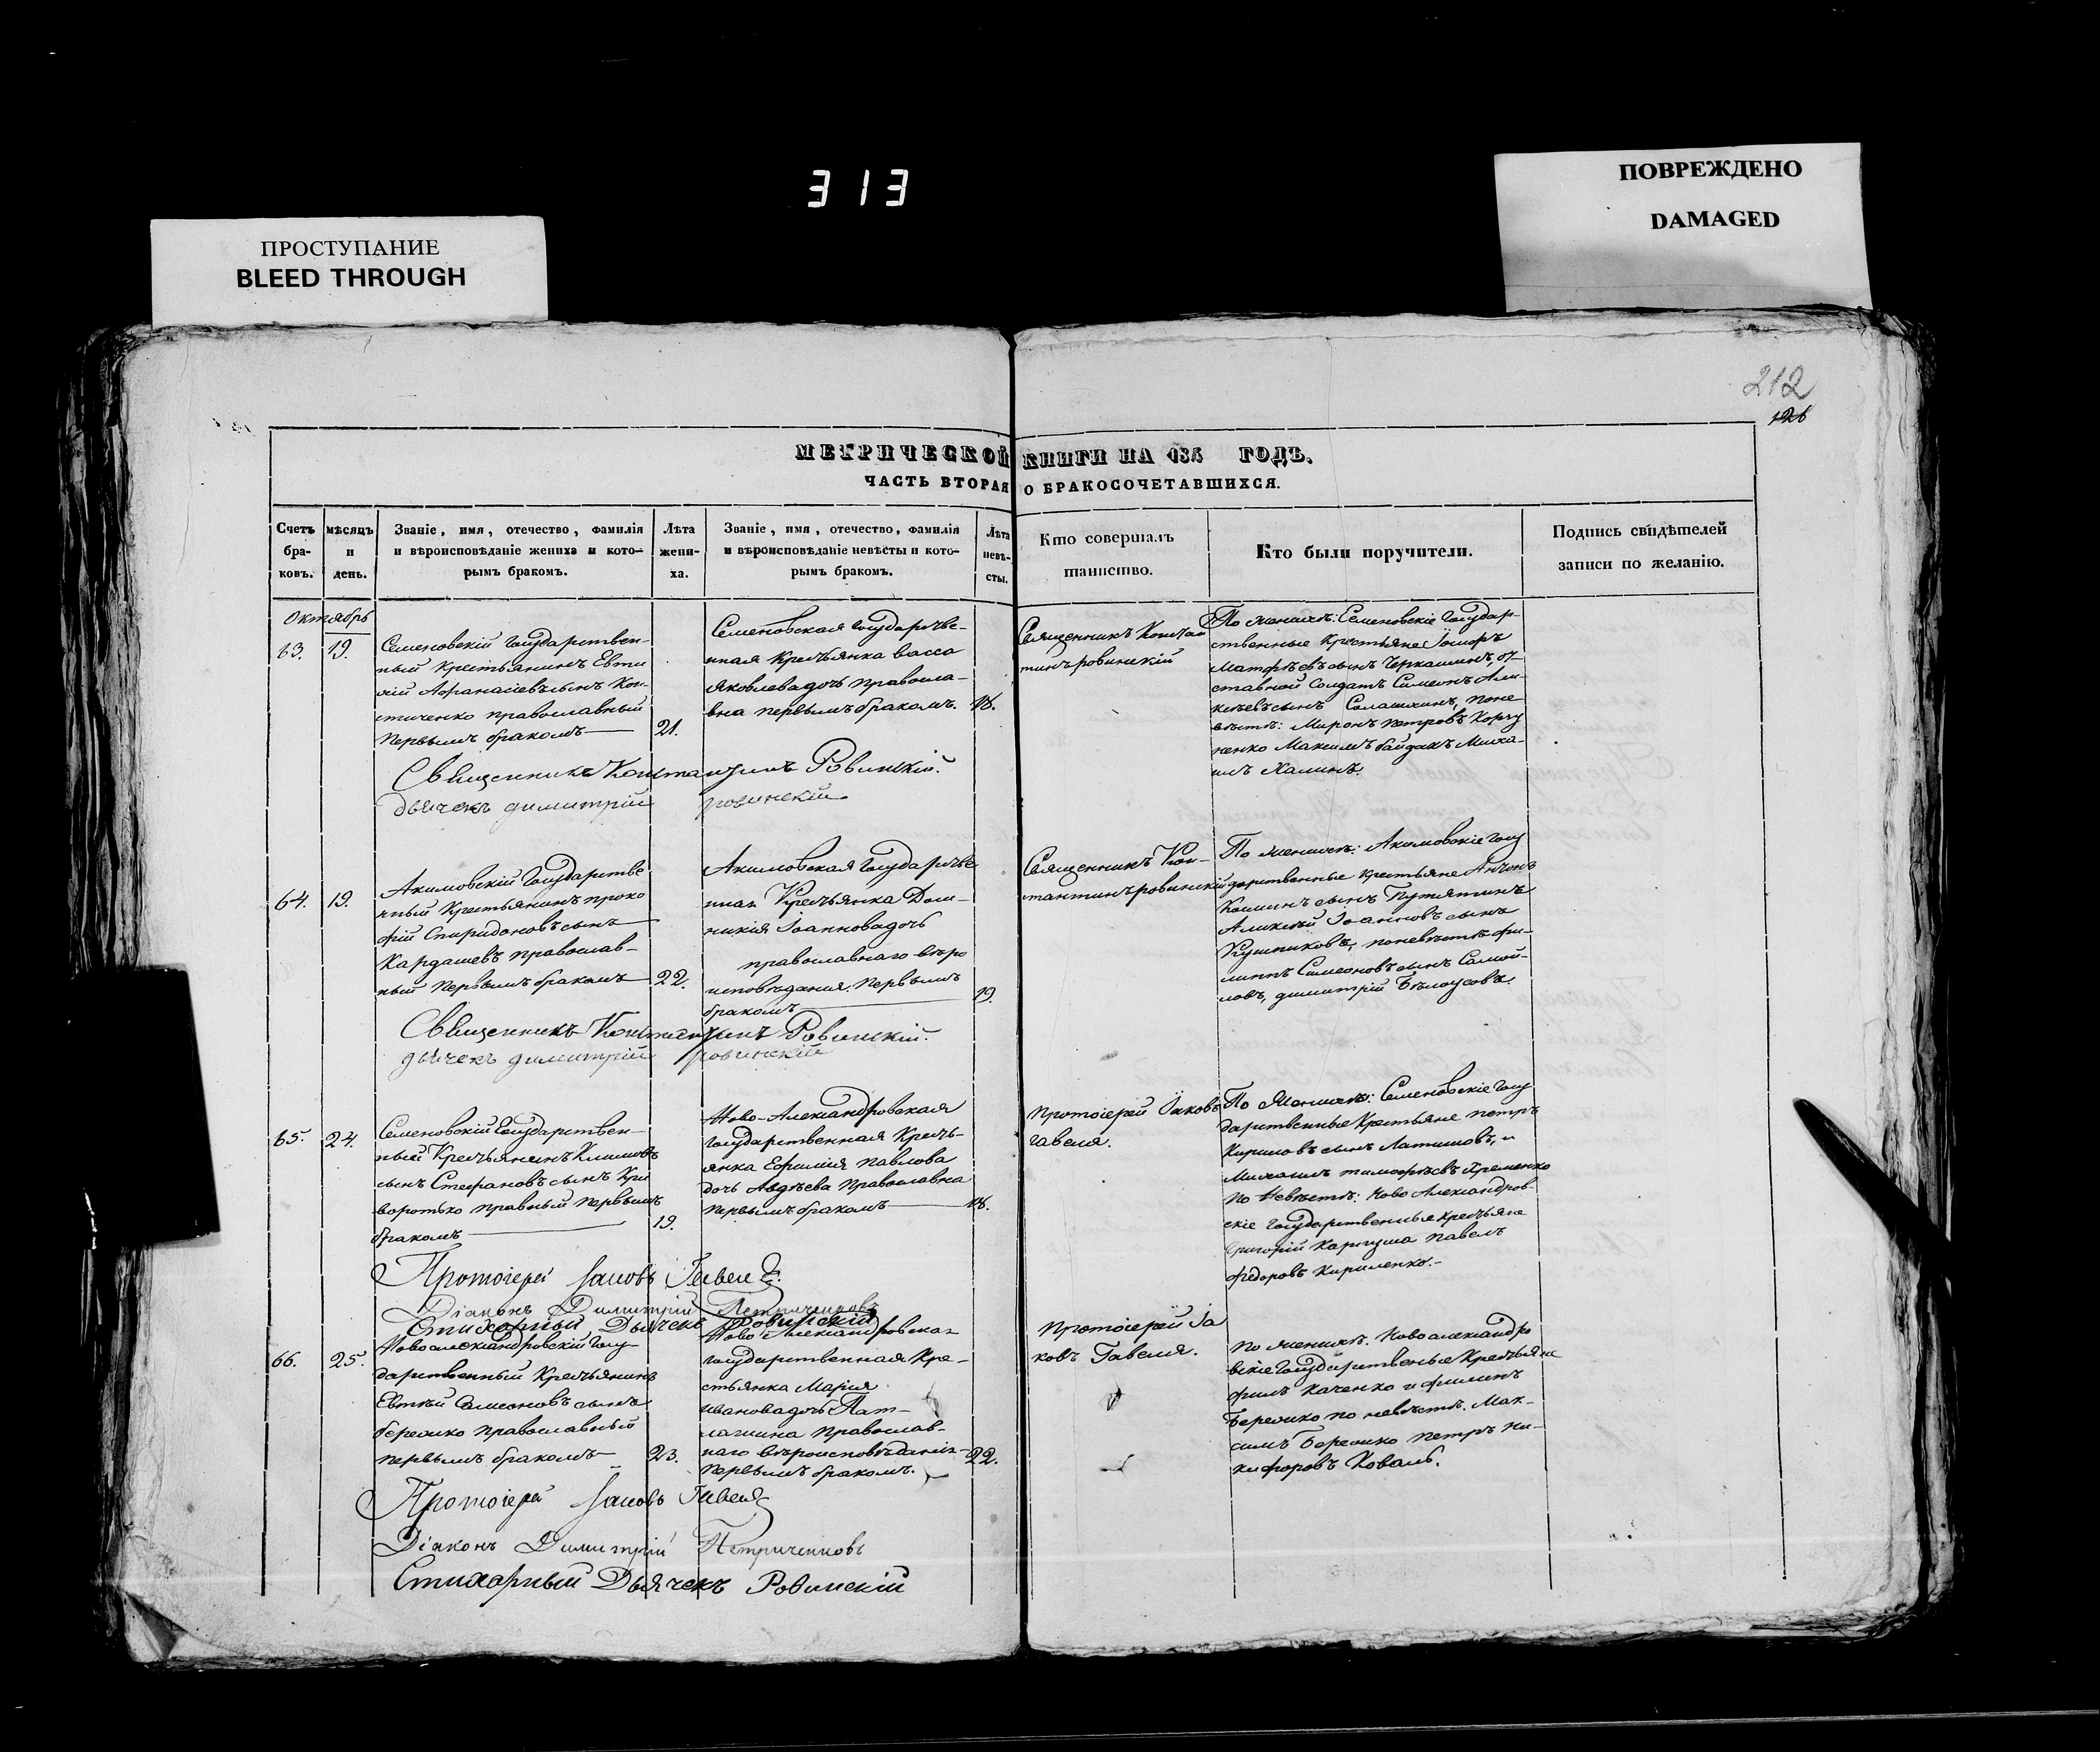 313
ПРОСТУПАНИЕ
BLEED THROUGH
ПОВРЕЖДЕНО
DAMAGED
212
126
МЕТРИЧЕСКОЙ КНИГИ НА 185 ГОДЪ.
ЧАСТЬ ВТОРАЯ О БРАКОСОЧЕТАВШИХСЯ.
Счетъ
бра-
ковъ.
мѣсяцъ
и
день.
Званіе, имя, отечество, фамилія
и вѣроисповѣданіе жениха и кото-
рымъ бракомъ.
Лѣта
жени-
ха.
Званіе, имя, отечество, фамилія
и вѣроисповѣданіе невѣсты и кото-
рымъ бракомъ.
Лѣта
невѣ-
сты.
Кто совершалъ
таинство.
Кто были поручители.
Подпись свидѣтелей
записи по желанію.
Октябрь
63.
19.
Семеновскій Государствен-
ный Крестьянинъ Евти
хій Афанасіевъ сынъ Кос-
тиченко православный
первымъ бракомъ
21.
Семеновская Государстве-
нная Крестьянка Васса
Яковлева дочь правосла-
вна первымъ бракомъ.
18.
Священникъ Констан
тинъ ровинскій
По женихѣ: Семеновскіе Государ-
ственные Крестьяне
Матфѣевъ сынъ Черкашинъ, от-
ставной Солдатъ Симеонъ Али-
кѣевъ сынъ Салашкинъ, по не
вѣстѣ: Миронъ Петровъ Корчу
ненко Максимъ байдакъ Миха-
илъ Халинъ.
Священникъ Константинъ Ровинскій.
дьячекъ димитрій ровинскій
64.
19.
Акимовскій Государстве
нный Крестьянинъ проко
фій Спиридоновъ сынъ
Кардашевъ православ-
ный первымъ бракомъ
22.
Акимовская Государстве
нная Крестьянка Дом-
никія Іоаннова дочь
православнаго вѣро
исповѣданія. первымъ
бракомъ
19.
Священникъ Кон-
стантинъ ровинскій
По женихѣ: Акимовскіе Госу
дарственные крестьяне Антонъ
Козминъ сынъ Путятинъ
Алексѣй Іоанновъ сынъ
Кушниковъ, по невѣстѣ фи-
липпъ Симеоновъ сынъ Самой-
ловъ, димитрій Бѣлоусовъ.
Священникъ Константинъ Ровинскій.
дьячекъ димитрій ровинскій
65.
24.
Семеновскій Государствен-
ный Крестьянинъ Климовъ
сынъ Стефановъ сынъ Кри
воротько правный первымъ
бракомъ
19.
Ново-Александровская
Государственная Кресть-
янка Ефимія Павлова
дочь Авдѣева Православна
первымъ бракомъ
18.
протоіерей Іаковъ
гавеля.
По Женихѣ: Семеновскіе Госу
дарственные Крестьяне петръ
Кириловъ сынъ Латишовъ, и
Михаилъ тимофѣевъ Яременко
По Невѣстѣ: Ново Александров-
скіе Государственныя крестьяне
Григорій Картуша Павелъ
федоровъ Кириленко.-
Протоіерей Іаковъ Гавеля.
Діаконъ Димитрій Петриченковъ
Стихарный Дьячекъ Ровинскій
66.
25.
Новоалександровскій Госу-
дарственный Крестьянинъ
Евтѣй Симеоновъ сынъ
бережко православный
первымъ бракомъ
23.
Ново Александровская
Государственная Кре-
стьянка Марія
Иванова дочь Пат-
лашина Православ-
наго вѣроисповѣданія
первымъ бракомъ.
22.
протоіерей Іа
ковъ Гавеля.
По женихѣ. Новоалександро
вскіе Государственые Крестьяне
филъ Каченко и филипъ
Бережко по невѣстѣ. Мак-
симъ Бережко Петръ Ни-
кифоровъ Коваль.
Протоіерей Іаковъ Гавеля
Діаконъ Димитрій Петриченковъ
Стихарный Дьячекъ Ровинскій